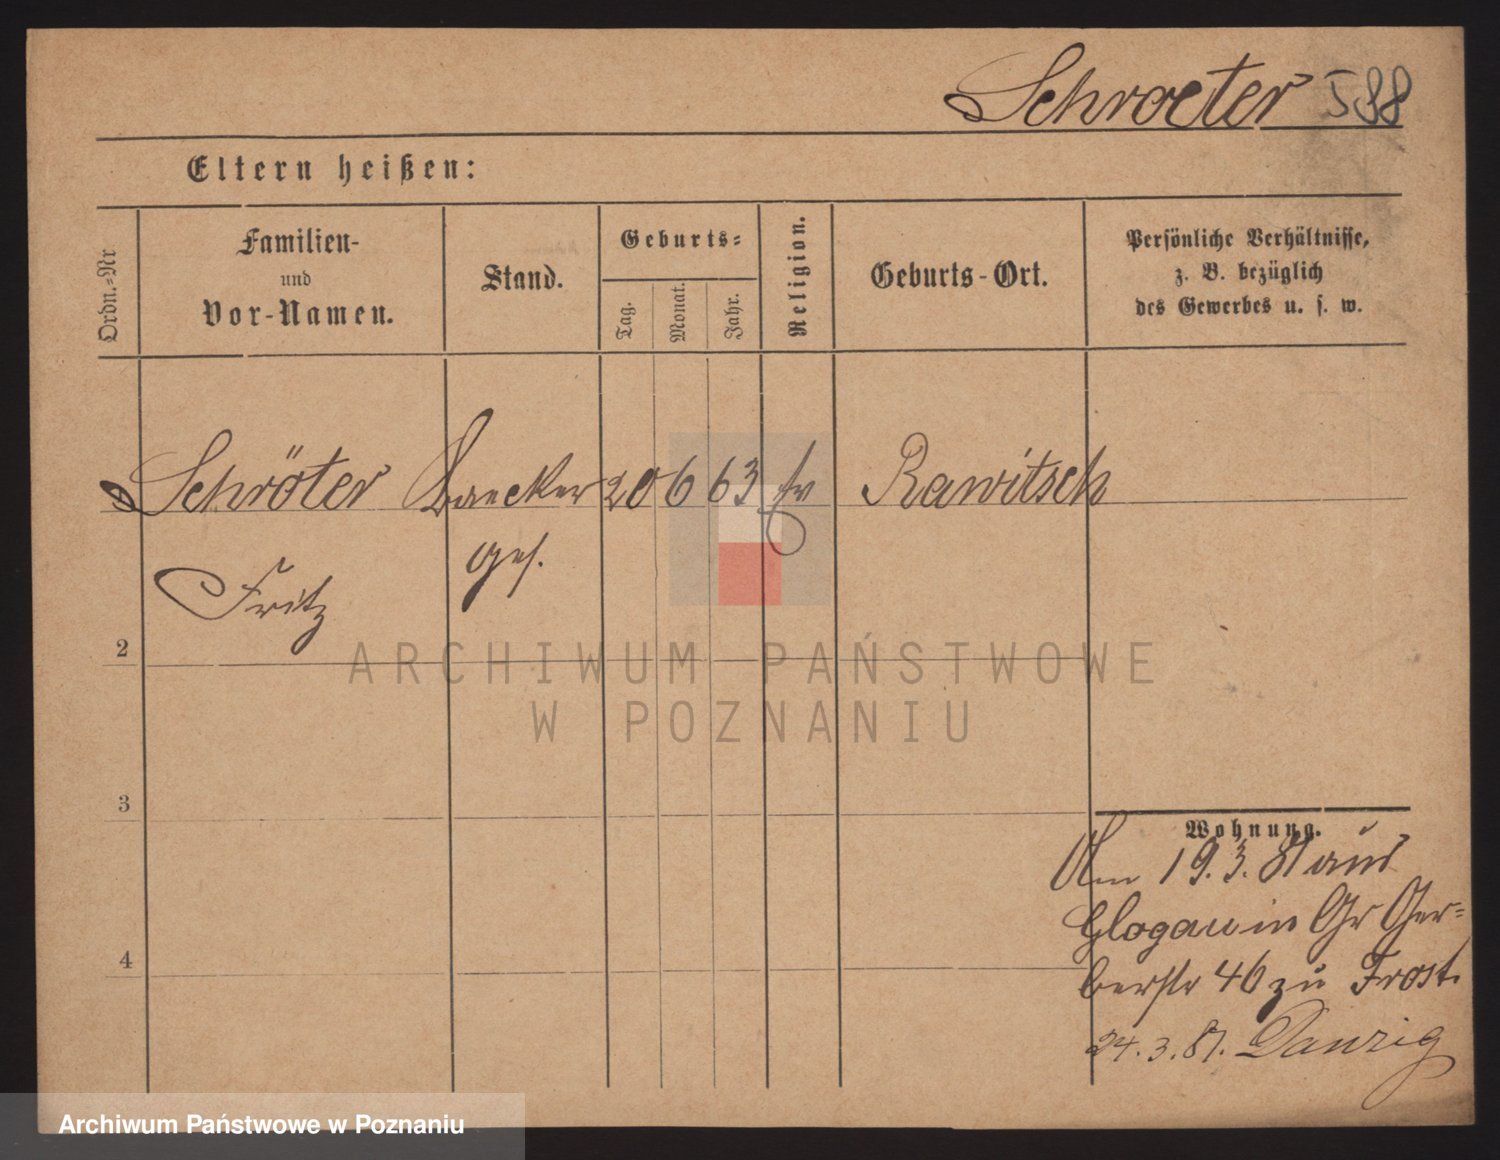 Schroeter 588
Eltern heißen:
Ordn.-Nr
Familien-
und
Vor-Namen.
Stand.
Geburts-
Tag.
Monat.
Jahr.
Religion.
Geburts-Ort.
Persönliche Verhältnisse,
z. B. bezüglich
des Gewerbes u. s. w.
Schröter Baecker 20 6 63 ev Rawitsch
Fritz ges.
2
3
4
Wohnung.
Am 19.3.81 aus
Glogau in Gr Ger-
berstr 46 zu Frost.
24.3.81. Danzig
ARCHIWUM PAŃSTWOWE
W POZNANIU
Archiwum Państwowe w Poznaniu